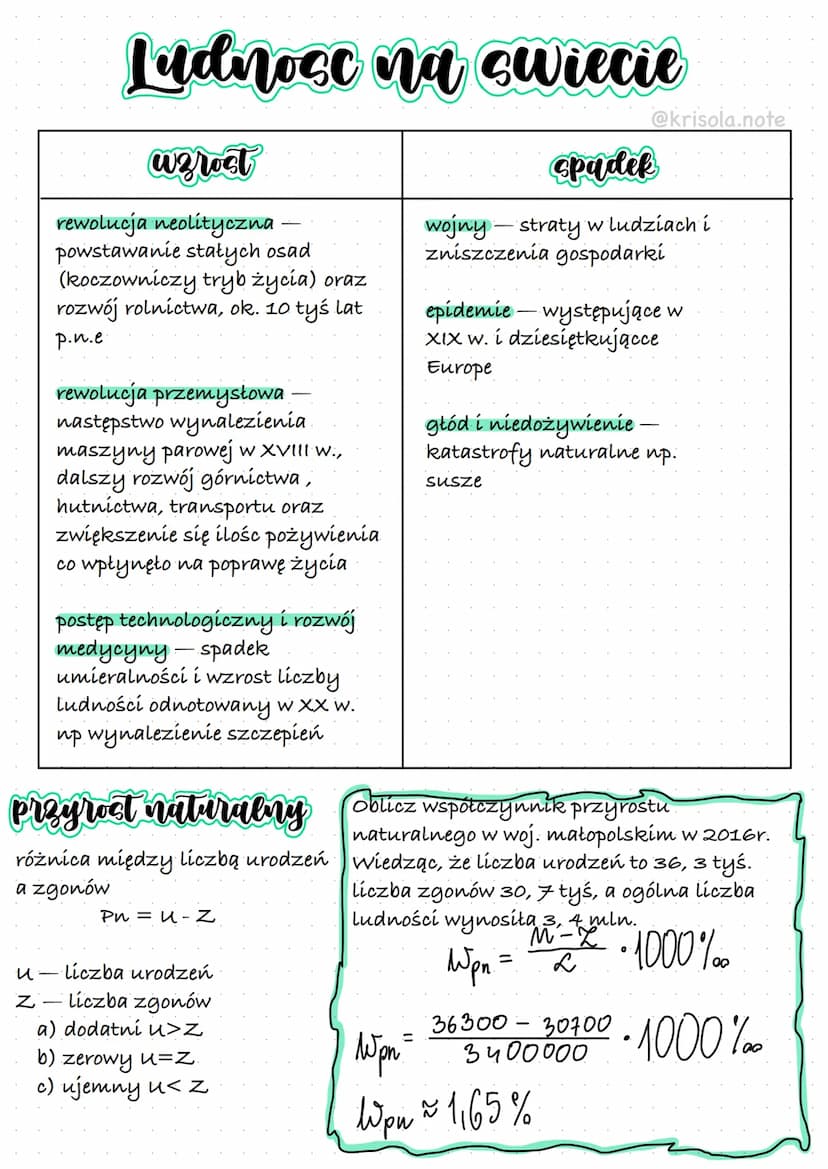 Ludnosc na swiecie
@krisola.note
wzrost
rewolucja neolityczna —
powstawanie stałych osad
(koczowniczy tryb życia) oraz
rozwój rolnictwa, ok. 10 tyś lat
p.n.e
rewolucja przemysłowa —
następstwo wynalezienia
maszyny parowej w XVIII w.,
dalszy rozwój górnictwa ,
hutnictwa, transportu oraz
zwiększenie się ilośc pożywienia
co wpłynęło na poprawę życia
postęp technologiczny i rozwój
medycyny — spadek
umieralności i wzrost liczby
ludności odnotowany w XX w.
np wynalezienie szczepień
spadek
wojny — straty w ludziach i
zniszczenia gospodarki
epidemie — występujące w
XIX w. i dziesiętkującce
Europe
głód i niedożywienie —
katastrofy naturalne np.
susze
przyrost naturalny
różnica między liczbą urodzeń
a zgonów
Pn = u - Z
u — liczba urodzeń
Z — liczba zgonów
a) dodatni u>Z
b) zerowy u=Z
c) ujemny u< Z
Oblicz współczynnik przyrostu
naturalnego w woj. małopolskim w 2016r.
Wiedząc, że liczba urodzeń to 36, 3 tyś.
liczba zgonów 30, 7 tyś, a ogólna liczba
ludności wynosiła 3, 4 mln.
Wpn = M-Z / L · 1000‰
Wpn = 36300 - 30700 / 3400000 · 1000‰
Wpn ≈ 1,65%